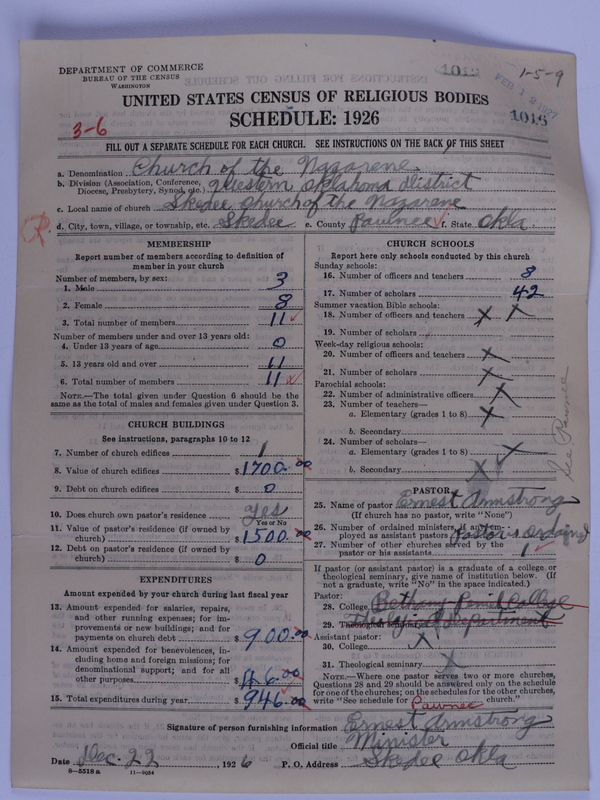 DEPARTMENT OF COMMERCE
BUREAU OF THE CENSUS
WASHINGTON
1-5-9
FEB 12 1927
1018
UNITED STATES CENSUS OF RELIGIOUS BODIES
SCHEDULE: 1926
3-6
FILL OUT A SEPARATE SCHEDULE FOR EACH CHURCH. SEE INSTRUCTIONS ON THE BACK OF THIS SHEET
a. Denomination Church of the Nazarene
b. Division (Association, Conference, Diocese, Presbytery, Synod, etc.) Western Oklahoma District
c. Local name of church Skedee Church of the Nazarene
d. City, town, village, or township, etc. Skedee e. County Pawnee f. State Okla
MEMBERSHIP
Report number of members according to definition of
member in your church
Number of members, by sex:
1. Male 3
2. Female 8
3. Total number of members 11
Number of members under and over 13 years old:
4. Under 13 years of age 0
5. 13 years old and over 11
6. Total number of members 11
NOTE.—The total given under Question 6 should be the
same as the total of males and females given under Question 3.
CHURCH BUILDINGS
See instructions, paragraphs 10 to 12
7. Number of church edifices 1
8. Value of church edifices $1700.00
9. Debt on church edifices $ 0
10. Does church own pastor's residence Yes
Yes or No
11. Value of pastor's residence (if owned by
church) $1500.00
12. Debt on pastor's residence (if owned by
church) $ 0
EXPENDITURES
Amount expended by your church during last fiscal year
13. Amount expended for salaries, repairs,
and other running expenses; for im-
provements or new buildings; and for
payments on church debt $900.00
14. Amount expended for benevolences, in-
cluding home and foreign missions; for
denominational support; and for all
other purposes $46.00
15. Total expenditures during year $946.00
CHURCH SCHOOLS
Report here only schools conducted by this church
Sunday schools:
16. Number of officers and teachers 8
17. Number of scholars 42
Summer vacation Bible schools:
18. Number of officers and teachers X X
19. Number of scholars
Week-day religious schools:
20. Number of officers and teachers X
21. Number of scholars X
Parochial schools:
22. Number of administrative officers X
23. Number of teachers—
a. Elementary (grades 1 to 8) X
b. Secondary
24. Number of scholars—
a. Elementary (grades 1 to 8) X
b. Secondary X
See Pawnee
PASTOR
25. Name of pastor Ernest Armstrong
(If church has no pastor, write "None")
26. Number of ordained ministers, if any, em-
ployed as assistant pastors Pastor is Ordained
27. Number of other churches served by the
pastor or his assistants 1
If pastor (or assistant pastor) is a graduate of a college or
theological seminary, give name of institution below. (If
not a graduate, write "No" in the space indicated.)
Pastor:
28. College Bethany Penil College
29. Theological Department
Assistant pastor:
30. College X
31. Theological seminary X
NOTE.—Where one pastor serves two or more churches,
Questions 28 and 29 should be answered only on the schedule
for one of the churches; on the schedules for the other churches,
write "See schedule for Pawnee church."
Signature of person furnishing information Ernest Armstrong
Official title Minister
Date Dec. 22, 1926 P. O. Address Skedee Okla
8—5518a 11—9034